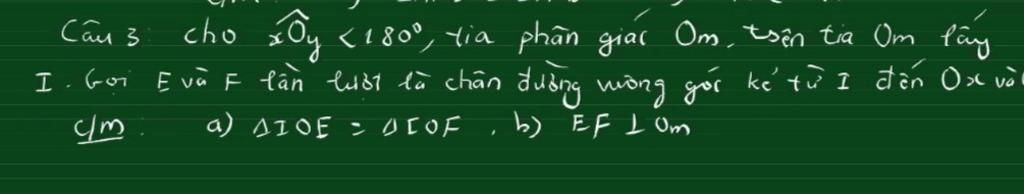 Câu 3: cho xÔy < 180°, tia phân giác Om, trên tia Om lấy
I. Gọi E và F lần lượt là chân đường vuông góc kẻ từ I đến Ox và
c/m: a) ΔIOE = ΔIOF, b) EF ⊥ Om